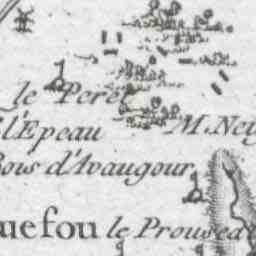 le Peré
l'Epeau M. Ney
Bois d'Avaugour
uefou le Prouseau